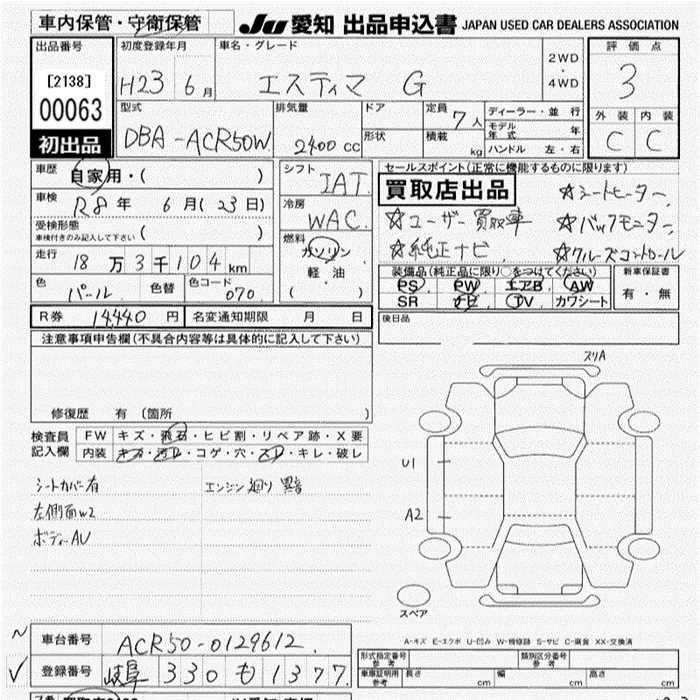 車内保管・守衛保管
JU 愛知 出品申込書 JAPAN USED CAR DEALERS ASSOCIATION
出品番号
[2138]
00063
初出品
初度登録年月
H23 6月
車名・グレード
エスティマ G
2WD
・
4WD
評価点
3
外装 内装
C C
型式
DBA-ACR50W
排気量
2400 cc
ドア
形状
定員 7人
積載 kg
ディーラー・並行
モデル年式 年
ハンドル 左・右
車歴 自家用・( )
車検 R8年 6月(23日)
受検形態
車検付きのみ記入して下さい ( )
走行 18万3千104km
色 パール 色替 色コード 070
シフト IAT
冷房 WAC
燃料
ガソリン
軽油
( )
セールスポイント(正常に機能するものに限ります)
買取店出品 ☆シートヒーター
☆ユーザー買取車 ☆バックモニター
☆純正ナビ ☆クルーズコントロール
装備品(純正品に限り○をつけてください)
PS PW エアB AW
SR ナビ TV カワシート
新車保証書
有・無
R券 14,440円 名変通知期限 月 日
後日品
注意事項申告欄(不具合内容等は具体的に記入して下さい)
修復歴 有 (箇所 )
検査員記入欄
FW キズ・飛石・ヒビ割・リペア跡・X要
内装 キズ・汚レ・コゲ・穴・スレ・キレ・破レ
シートカバー有 エンジン廻り異音
左側面W2
ボディーAU
スリA
U1
A2
スペア
A-キズ E-エクボ U-凹み W-補修跡 S-サビ C-腐食 XX-交換済
車台番号 ACR50-0129612
登録番号 岐阜 330 も 1377
型式指定番号 参考 類別区分番号 参考
車庫証明用 参考 長さ cm 幅 cm 高さ cm